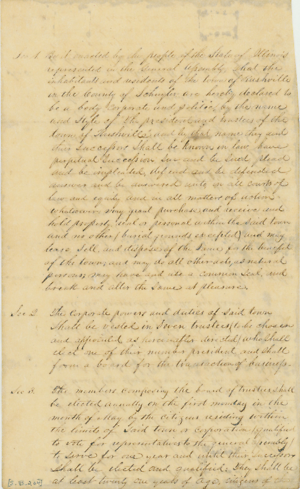 Sec 1 Be it enacted by the people of the State of Illinois
represented in the General Assembly That the
inhabitants and residents of the town of Rushville
in the County of Schuyler are hereby declared to
be a body corporate and politic by the name
and Style of the president and trustees of the
town of Rushville and by that name they and
their Successors Shall be known in law have
perpetual Succession Sue and be Sued plead
and be impleaded defend and be defended
answer and be answered unto in all courts of
law and equity and in all matters of action
whatsoever may grant purchase and receive and
hold property real or personal within the Said town
and no other (burial grounds excepted) and may
lease Sell and dispose of the Same for the benefit
of the town and may do all other acts as natural
persons may have and use a common Seal and
break and alter the Same at pleasure
Sec 2 The corporate powers and duties of Said town
Shall be vested in Seven trustees to be chosen
and appointed as hereinafter directed who shall
elect one of their number president and shall
form a board for the transaction of business
Sec 3 The members composing the board of trustees shall
be elected annually on the first monday in the
month of May by the citizens residing within
the limits of Said town or corporation qualified
to vote for representatives to the general assembly
to Serve for one year and until their Successors
Shall be elected and qualified They Shall be
at least twenty one years of age citizens of the